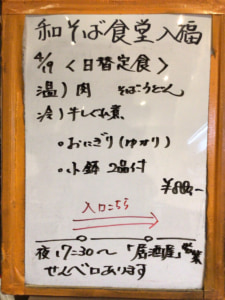 和そば食堂入福
4/19 <日替定食>
温) 肉 そばうどん
冷) 牛しぐれ煮
・おにぎり(ゆかり)
・小鉢 2品付
¥880,-
入口こちら
夜17:30〜「居酒屋」営業
せんベロあります